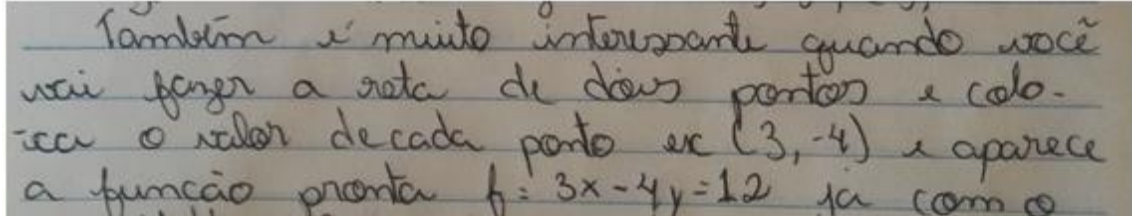 Também é muito interessante quando você
vai fazer a reta de dois pontos e colo-
-ca o valor de cada ponto ex (3,-4) e aparece
a função pronta f: 3x-4y=12 já com o